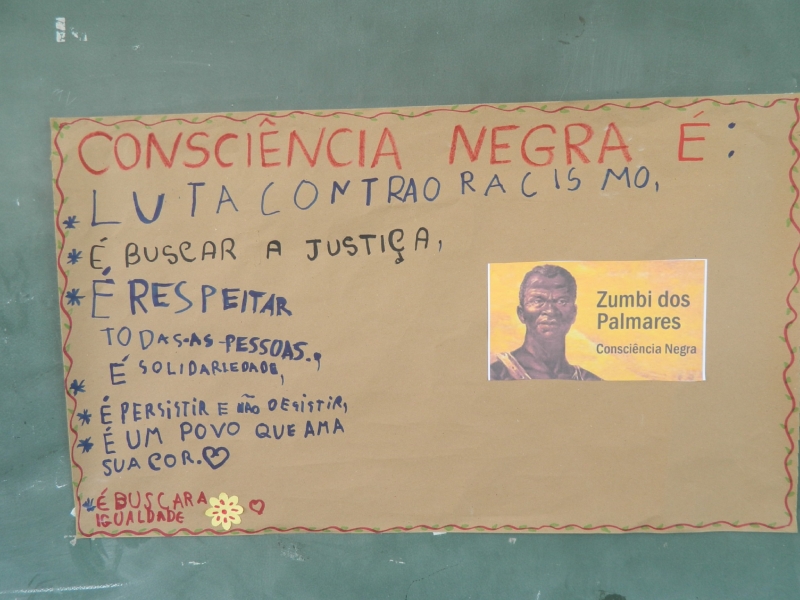 CONSCIÊNCIA NEGRA É:
* LUTA CONTRA O RACISMO,
* É BUSCAR A JUSTIÇA,
* É RESPEITAR
TODAS-AS-PESSOAS.,
* É SOLIDARIEDADE,
* É PERSISTIR E NÃO DESISTIR,
* É UM POVO QUE AMA
SUA COR.
* É BUSCAR A
IGUALDADE
Zumbi dos
Palmares
Consciência Negra